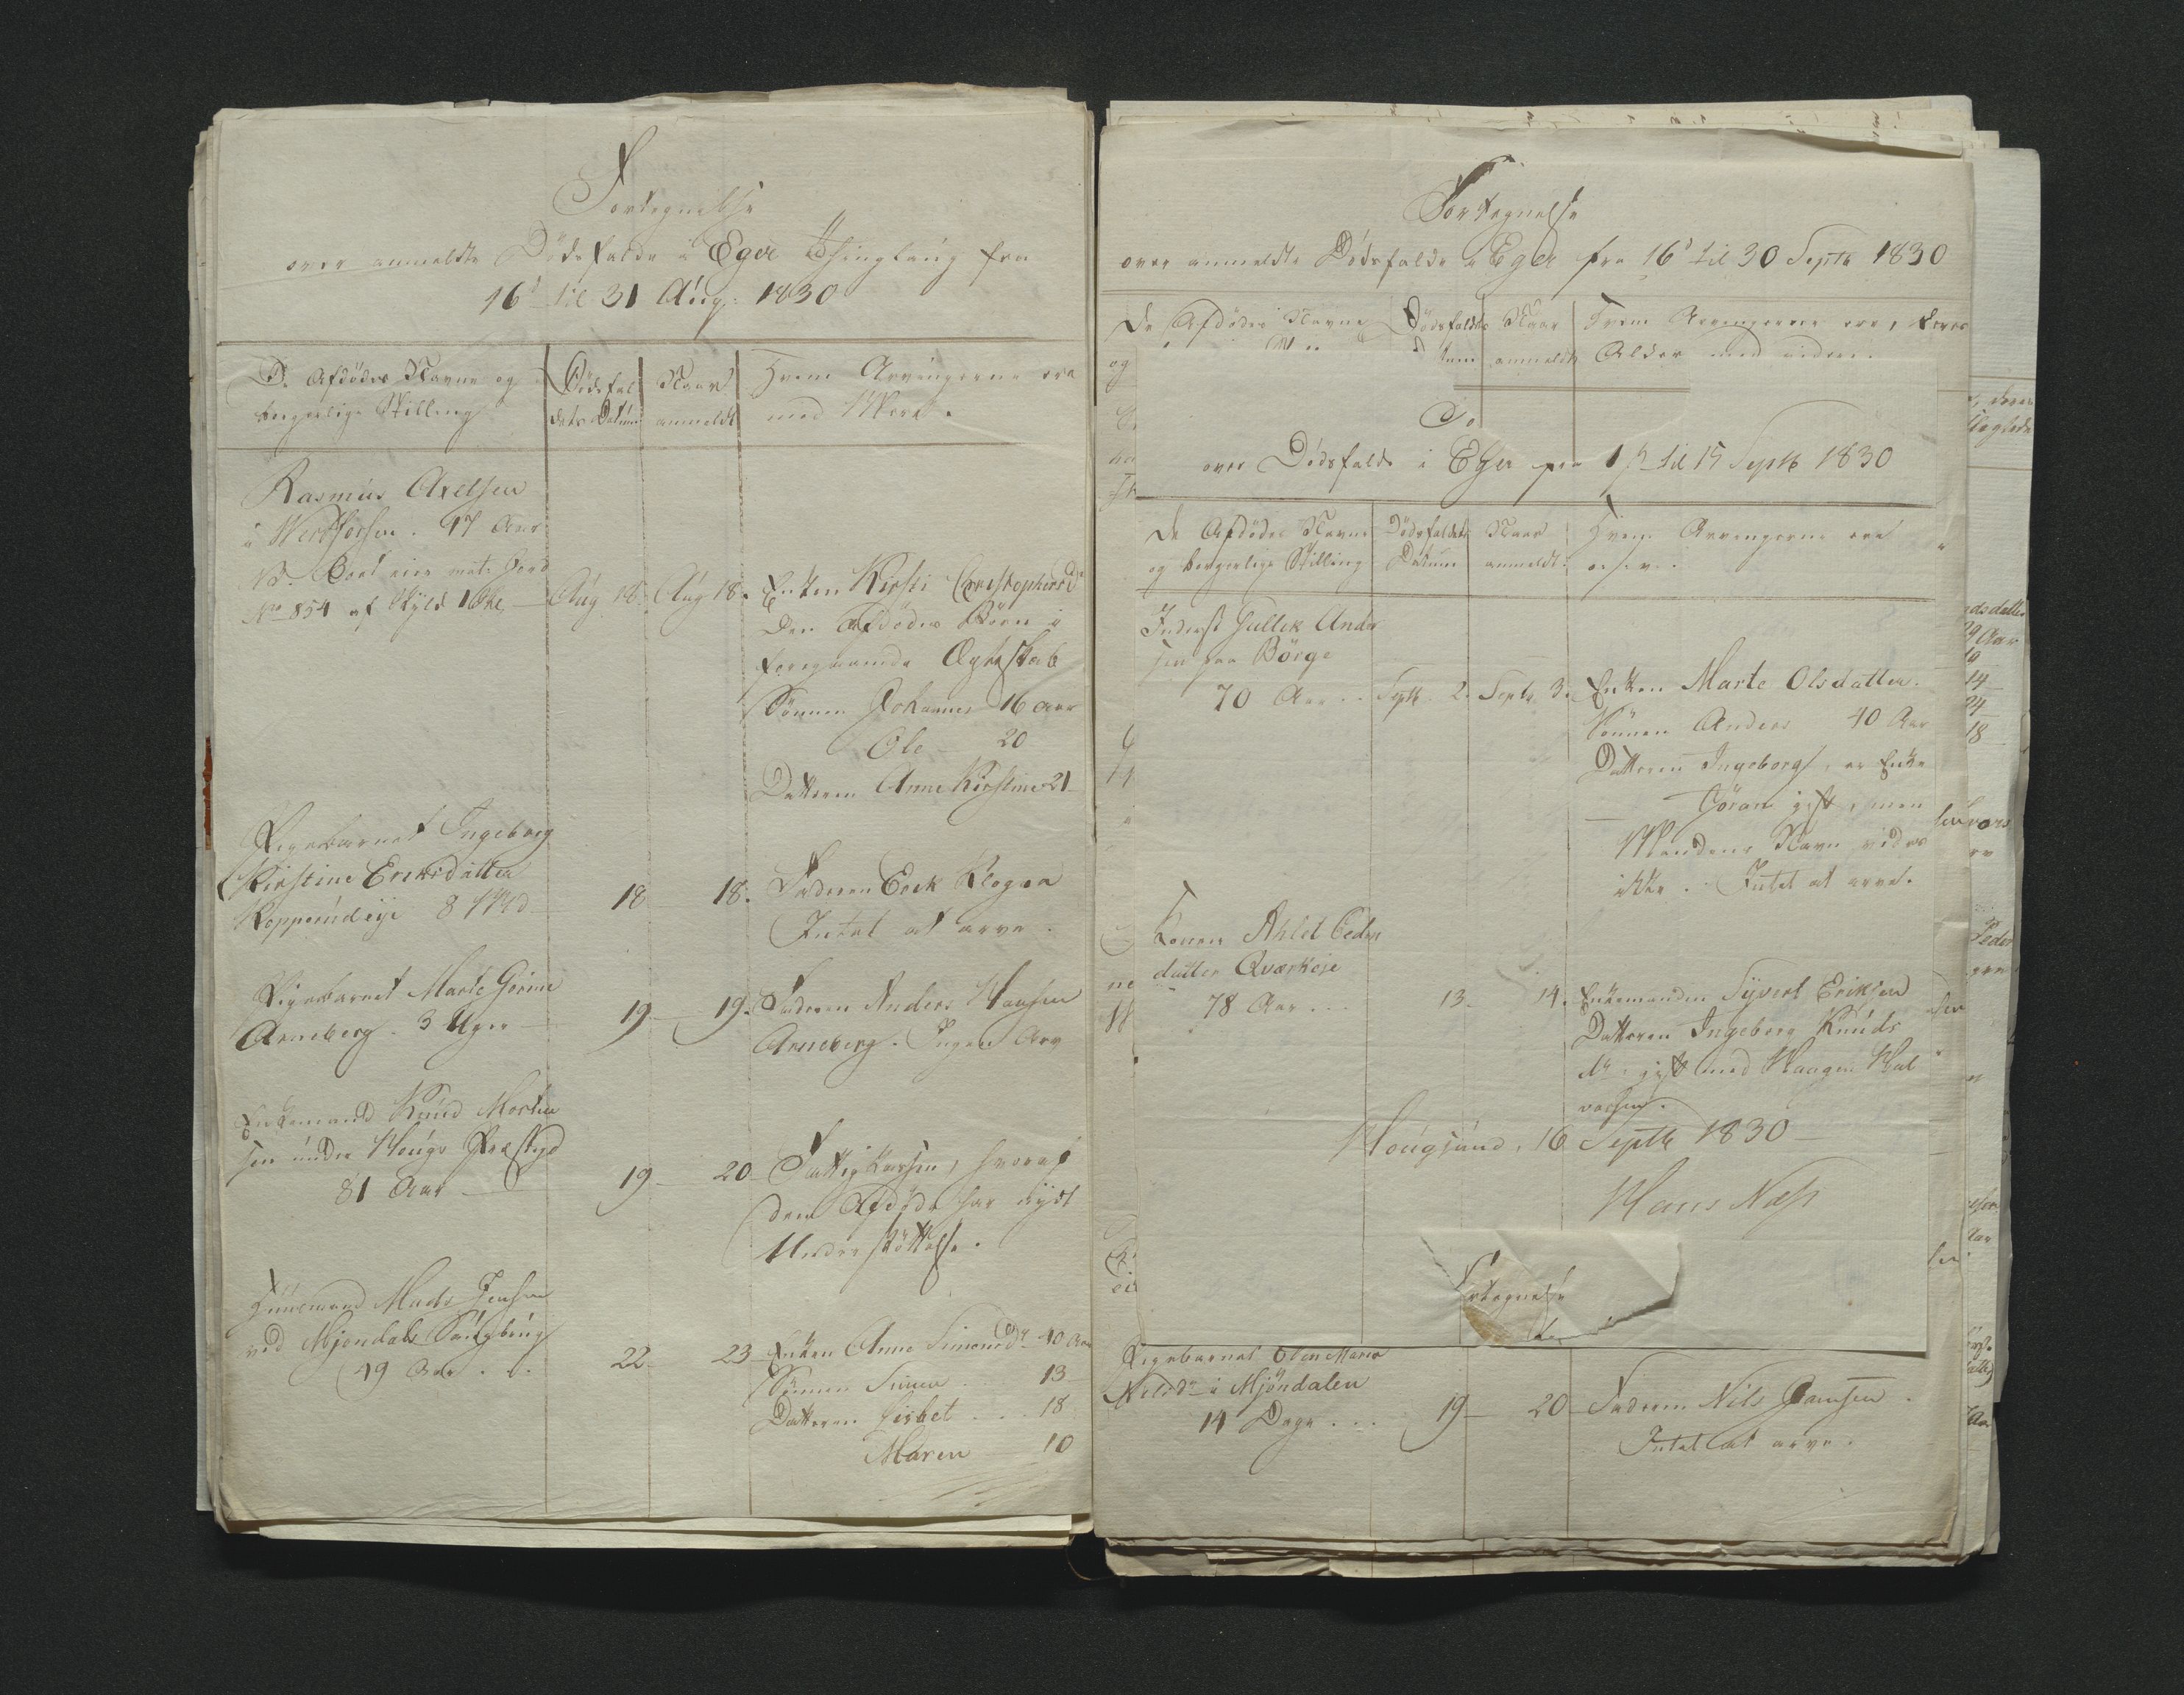 Fortegnelse
over anmeldte Dödsfalde i Eger Thinglaug fra
16d til 31 Aug: 1830
De Afdödes Navne og
borgerlige Stilling
Dödsfal
dets Datum
Naar
anmeldt
Hvem Arvingerne ere
med Mere.
Rasmus Axelsen
47 Aar
No 854 af Skyld
Aug 18. Aug 18. Enken Kirsti Christophersdr
Den Afdödes Börn i
foregaaende Ægteskab
Sönnen Johannes 16 Aar
Ole 20
Datteren Anne Kirstine 21
Pigebarnet Ingeborg
Kirstine Eriksdatter
Kopperudeje 8 Md
18 18. Faderen Erik
Intet at arve.
Pigebarnet Marte Gorine
Arneberg. 3 Uger
19 19. Faderen Anders Hansen
Arneberg. Ingen Arv
Enkemand Knud Morten
sen under Hougs Præstegd
81 Aar
19 20 Fattigkassen, hvoraf
den Afdöde har nydt
Understöttelse.
Huusmand Mads Jensen
ved Mjondals Saugbrug
49 Aar . .
22 23 Enken Anne Simensdr 40 Aar
Sönnen Simen 13
Datteren Lisbet . . . 18
Maren 10
Fortegnelse
over anmeldte Dödsfalde i Eger fra 16d til 30 Septb 1830
De Afdödes Navne
og
Dödsfaldets
tum
Naar
anmeldt
Hvem Arvingerne ere, deres
Alder med videre.
Do
over Dödsfalde i Eger fra 1ste til 15 Septb 1830
De Afdödes Navne
og borgerlige Stilling
Dödsfaldets
Datum
Naar
anmeldt.
Hvem Arvingerne ere
o. s. v.
Inderst Gullik Ander
sen paa Börge
70 Aar . . Septb. 2. Septb 3. Enken Marte Olsdatter.
Sönnen Anders 40 Aar
Datteren Ingeborg, er Enke
— Göran gift, men
Mandens Navn vides
ikke. Intet at arve.
Konen Ahlet Peders
datter Qværkeje
78 Aar . . .
13. 14. Enkemanden Syvert Eriksen
Datteren Ingeborg Knuds
dr. gift med Haagen Hal
vorsen.
Hougsund, 16 Septb 1830
Hans Næss
Fortegnelse
Pigebarnet Olen Maria
Nilsdr i Mjöndalen
14 Dage . . . 19 20 Faderen Nils Hansen.
Intet at arve.